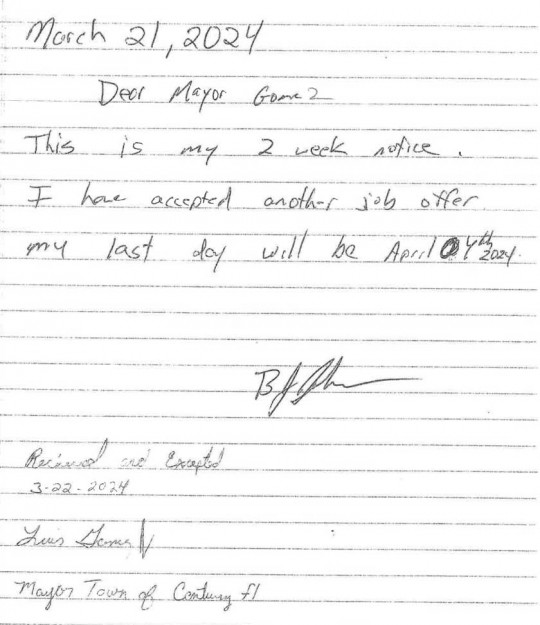 March 21, 2024
Dear Mayor Gomez
This is my 2 week notice.
I have accepted another job offer
my last day will be April 04th 2024.
Received and Excepted
3-22-2024
Luis Gomez
Mayor Town of Century fl